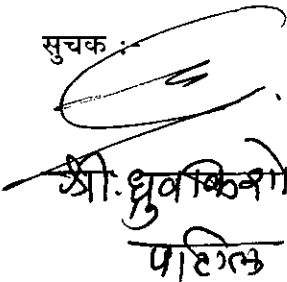 सुचक :-
श्री. ध्रुवकिशो
पाटील